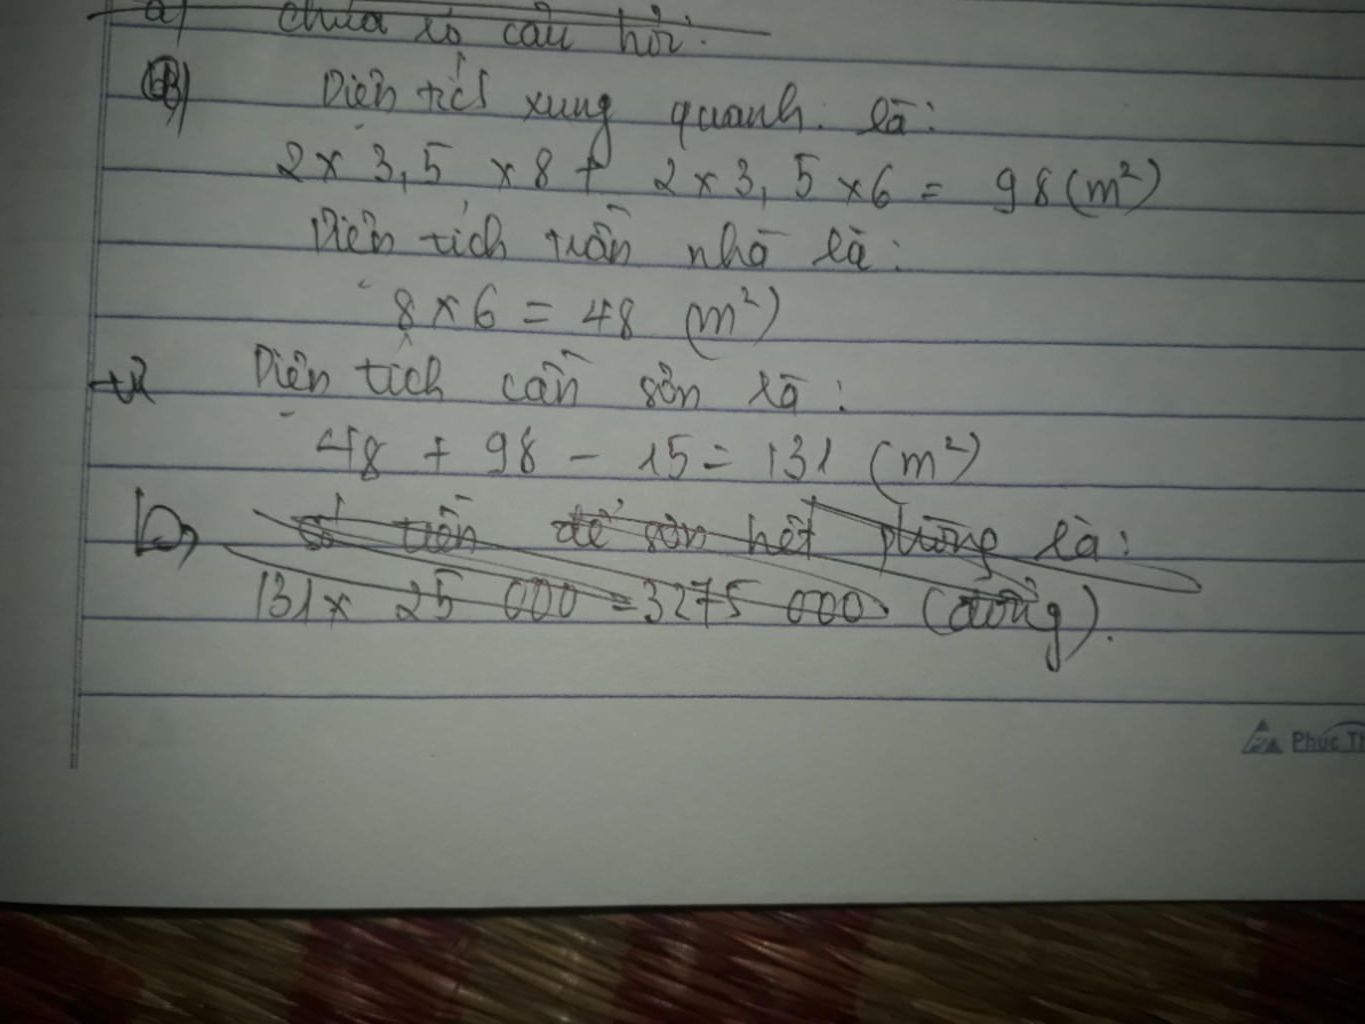 a) chưa rõ câu hỏi.
B) Diện tích xung quanh là:
2 x 3,5 x 8 + 2 x 3,5 x 6 = 98 (m²)
Diện tích trần nhà là:
8 x 6 = 48 (m²)
Diện tích cần sơn là:
48 + 98 - 15 = 131 (m²)
b, số tiền để sơn hết phòng là:
131 x 25 000 = 3275 000 (đồng).
Phúc Th